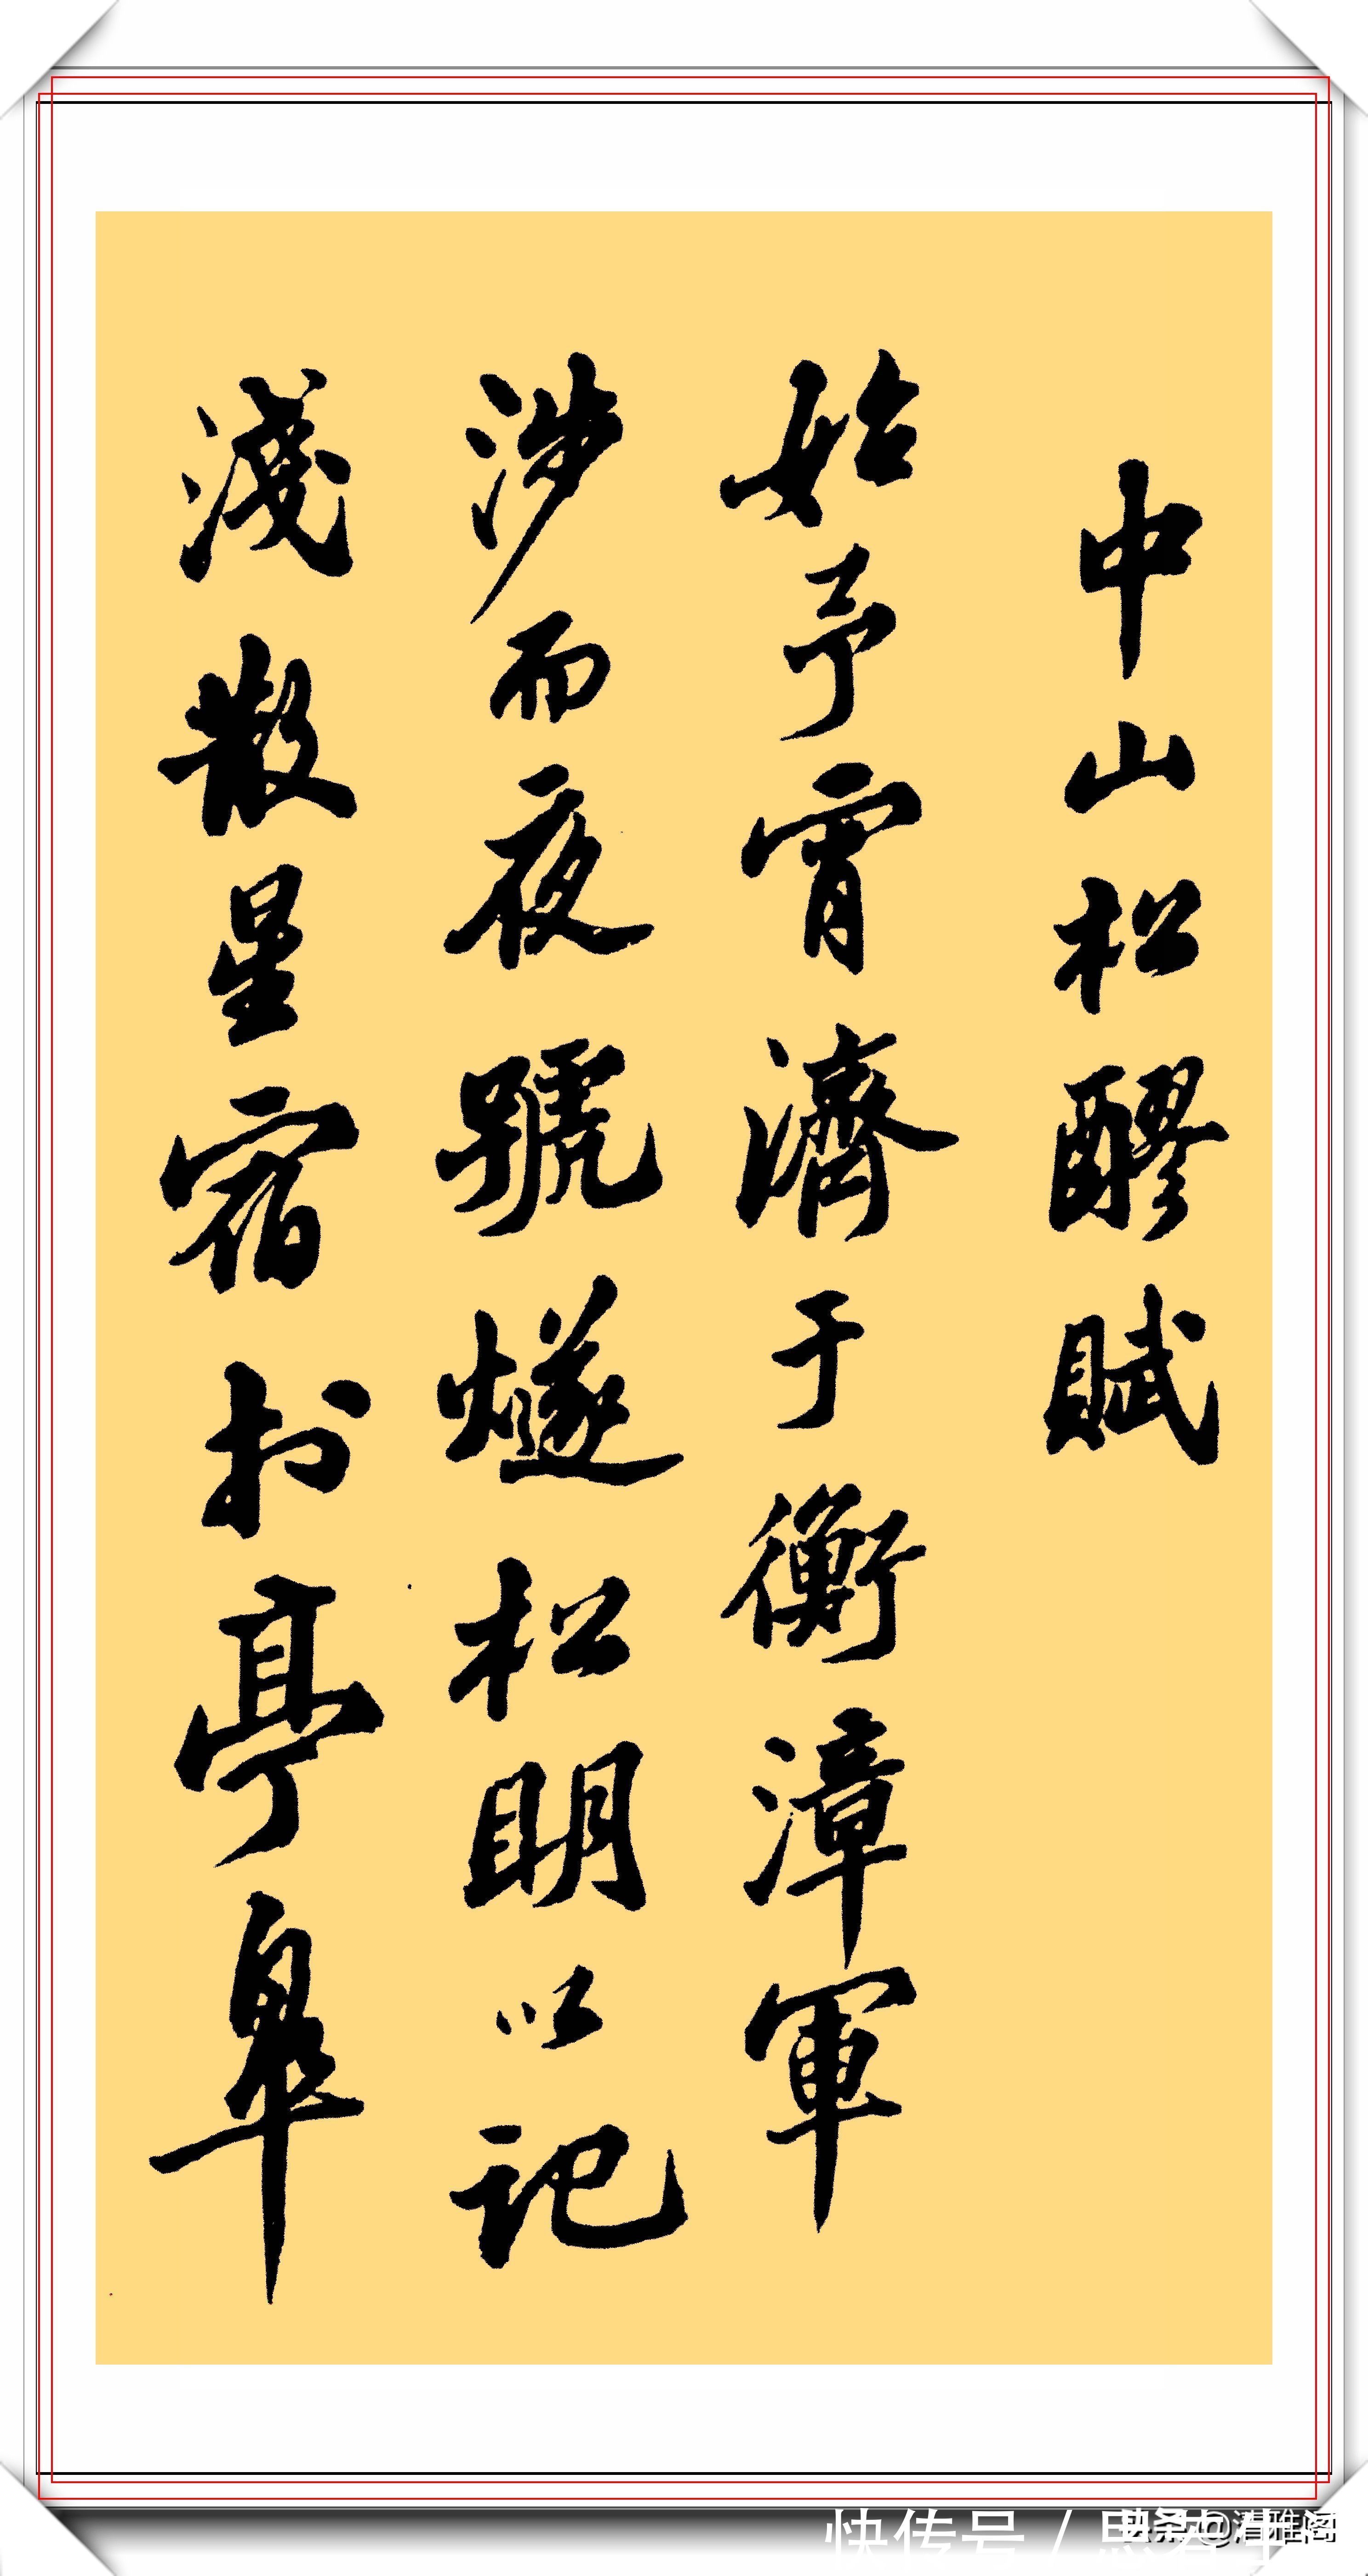 中山松醪賦
始予宵濟于衡漳軍
涉而夜號燧松明以記
淺散星宿於亭皋
快传号 /